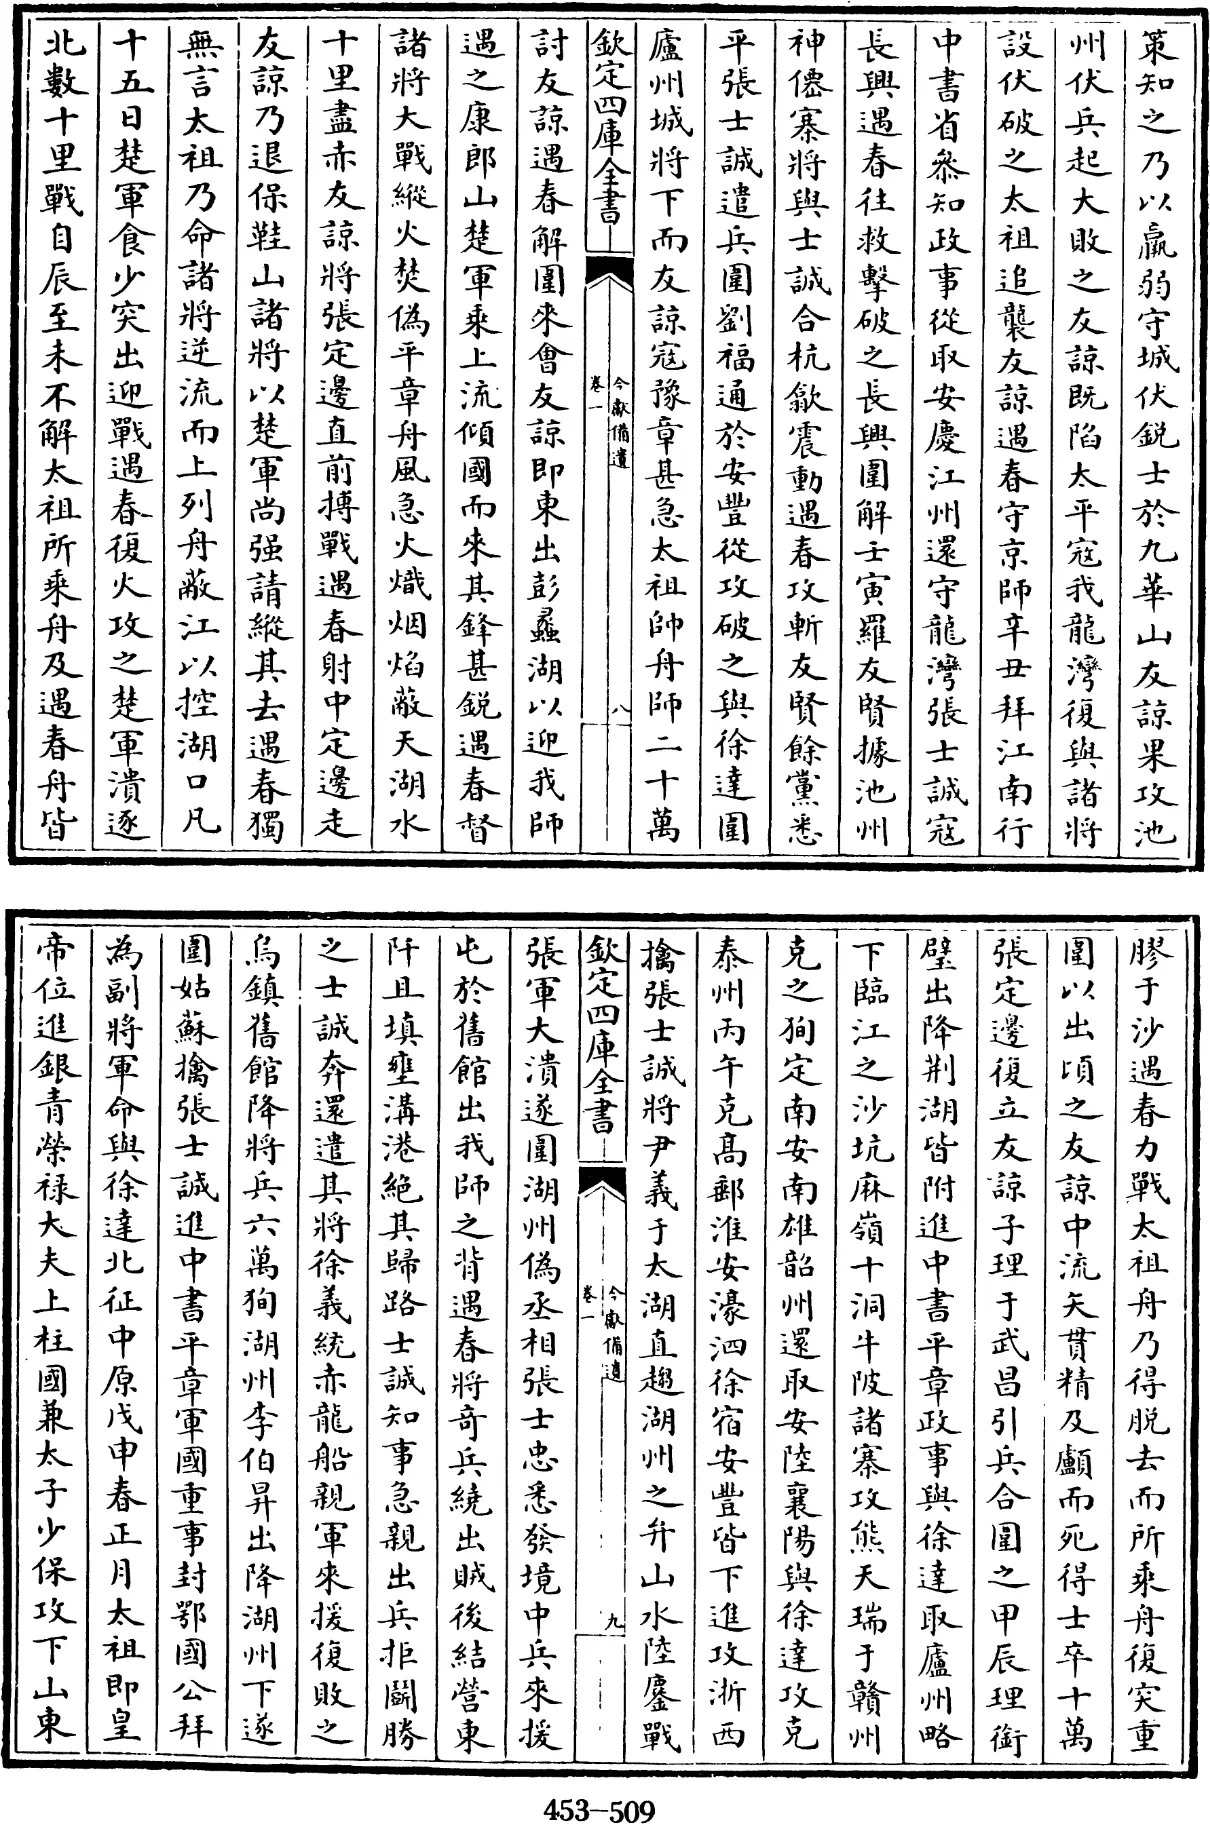 策知之乃以羸弱守城伏鋭士於九華山友諒果攻池
州伏兵起大敗之友諒既陷太平寇我龍灣復與諸將
設伏破之太祖追襲友諒遇春守京師辛丑拜江南行
中書省叅知政事從取安慶江州還守龍灣張士誠寇
長興遇春往救擊破之長興圍解壬寅羅友賢據池州
神僊寨將與士誠合杭歙震動遇春攻斬友賢餘黨悉
平張士誠遣兵圍劉福通於安豐從攻破之與徐達圍
廬州城將下而友諒寇豫章甚急太祖帥舟師二十萬
欽定四庫全書
今獻備遺
卷一
八
討友諒遇春解圍來會友諒即東出彭蠡湖以迎我師
遇之康郎山楚軍乘上流傾國而來其鋒甚鋭遇春督
諸將大戰縱火焚偽平章舟風急火熾烟焰蔽天湖水
十里盡赤友諒將張定邊直前搏戰遇春射中定邊走
友諒乃退保鞋山諸將以楚軍尚强請縱其去遇春獨
無言太祖乃命諸將逆流而上列舟蔽江以控湖口凡
十五日楚軍食少突出迎戰遇春復火攻之楚軍潰逐
北數十里戰自辰至未不解太祖所乘舟及遇春舟皆
膠于沙遇春力戰太祖舟乃得脱去而所乘舟復突重
圍以出頃之友諒中流矢貫精及顱而死得士卒十萬
張定邊復立友諒子理于武昌引兵合圍之甲辰理銜
璧出降荆湖皆附進中書平章政事與徐達取廬州略
下臨江之沙坑麻嶺十洞牛陂諸寨攻熊天瑞于贛州
克之狥定南安南雄韶州還取安陸襄陽與徐達攻克
泰州丙午克髙郵淮安濠泗徐宿安豐皆下進攻浙西
擒張士誠將尹義于太湖直趨湖州之弁山水陸鏖戰
欽定四庫全書
今獻備遺
卷一
九
張軍大潰遂圍湖州偽丞相張士忠悉發境中兵來援
屯於舊館出我師之背遇春將竒兵繞出賊後結營東
阡且填壅溝港絶其歸路士誠知事急親出兵拒鬭勝
之士誠奔還遣其將徐義統赤龍船親軍來援復敗之
烏鎮舊館降將兵六萬狥湖州李伯昇出降湖州下遂
圍姑蘇擒張士誠進中書平章軍國重事封鄂國公拜
為副將軍命與徐達北征中原戊申春正月太祖即皇
帝位進銀青榮禄大夫上柱國兼太子少保攻下山東
453-509